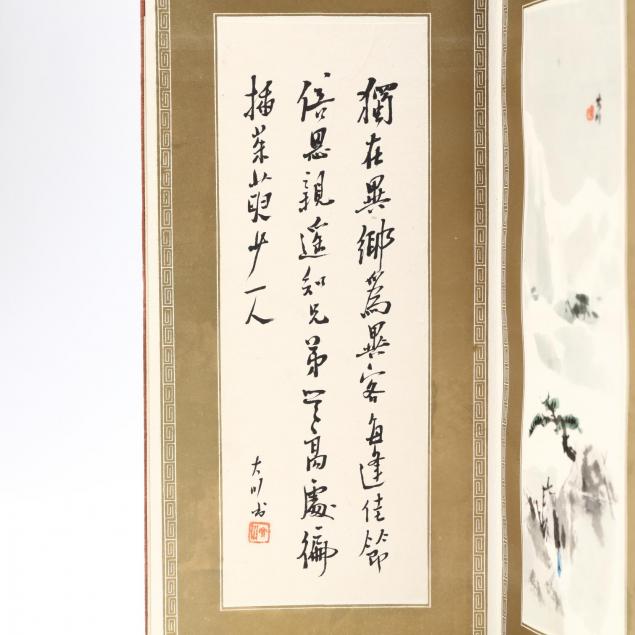 獨在異鄉為異客每逢佳節
倍思親遙知兄弟登高處徧
插茱萸少一人
大川書